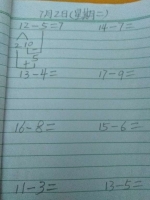 7月2日(星期二)
12-5=7 14-7=
2 10
5
13-4= 17-9=
16-8= 15-6=
11-3= 13-5=